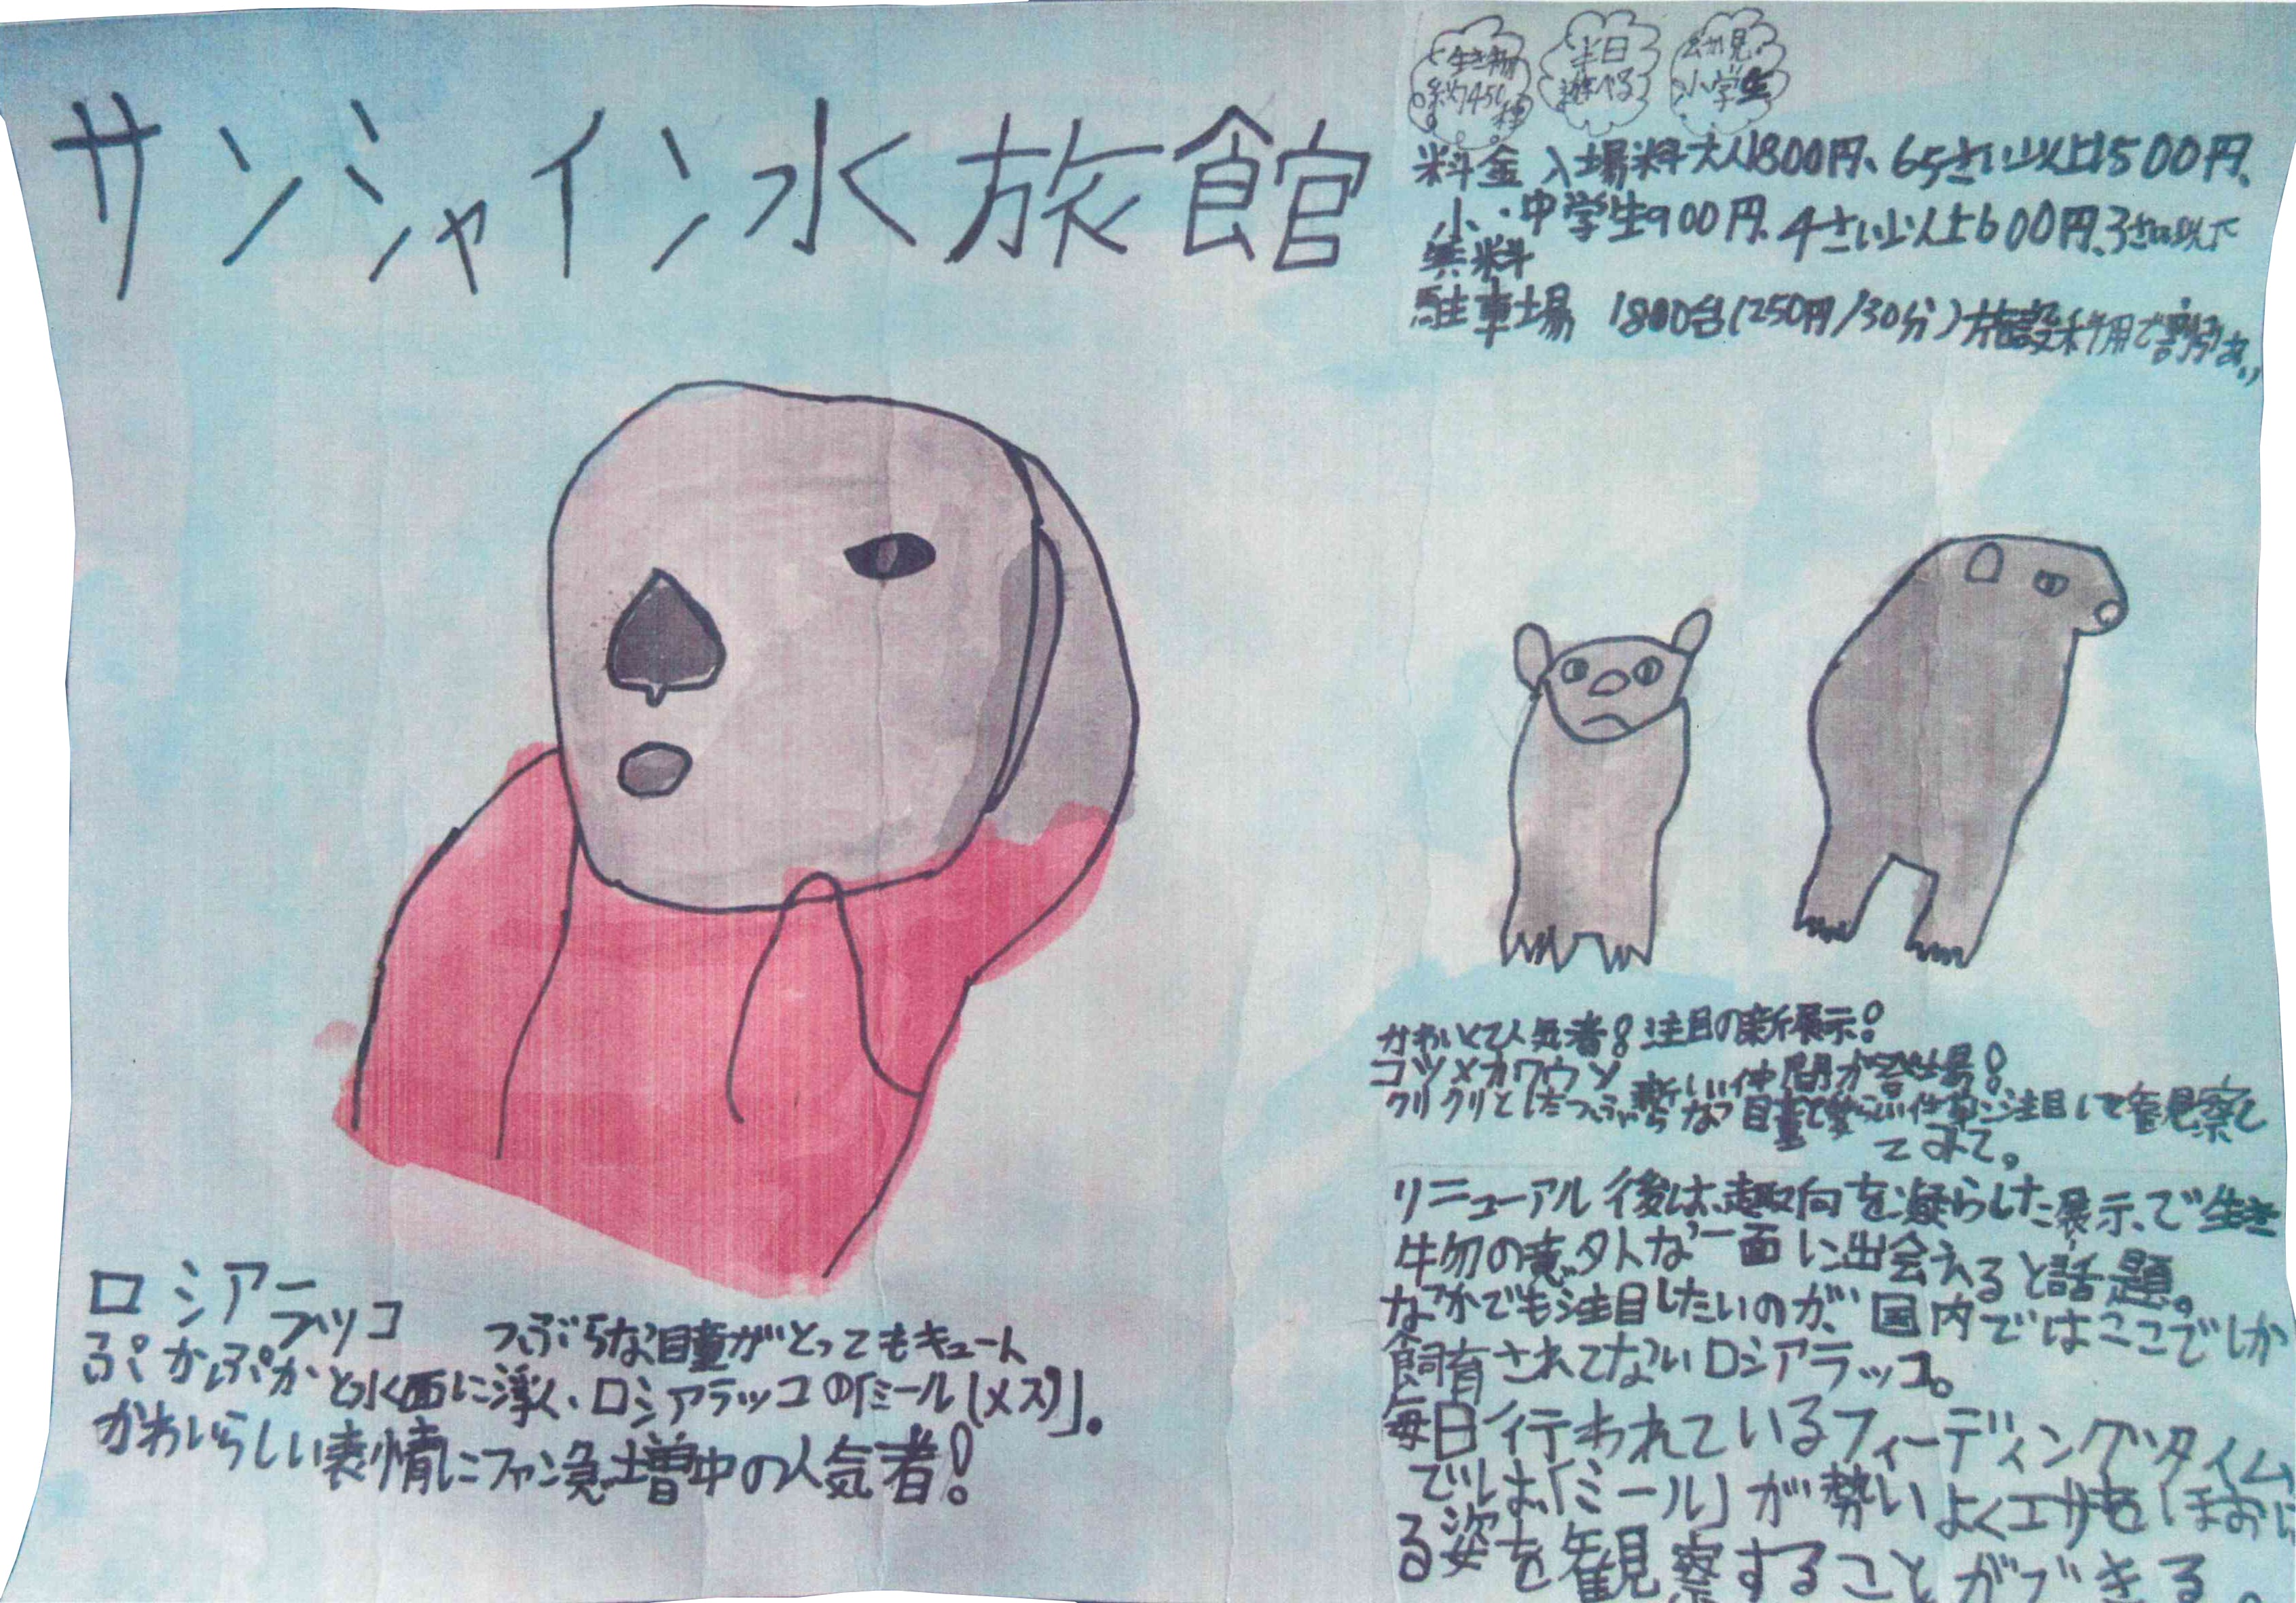 サンシャイン水旅館
生き物
約450種
半日
遊べる
幼児
小学生
料金 入場料大人1800円、65さい以上1500円、
小・中学生900円、4さい以上600円、3さい以下
無料
駐車場 1800台(250円/30分)施設利用で割引あり
かわいくて人気者!注目の新展示!
コツメカワウソ 新しい仲間が登場!
クリクリとしたつぶらな瞳と愛らしい仕草に注目して観察し
てみて。
リニューアル後は、趣向を凝らした展示で生き
物の意外な一面に出会えると話題。
なかでも注目したいのが、国内ではここでしか
飼育されてないロシアラッコ。
毎日行われているフィーディングタイム
では、「ミール」が勢いよくエサをほおば
る姿を観察することができる。
ロシアーラッコ
つぶらな瞳がとってもキュート
ぷかぷかと水面に浮く、ロシアラッコの「ミール(メス)」。
かわいらしい表情にファン急増中の人気者!